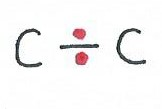 C ÷ C